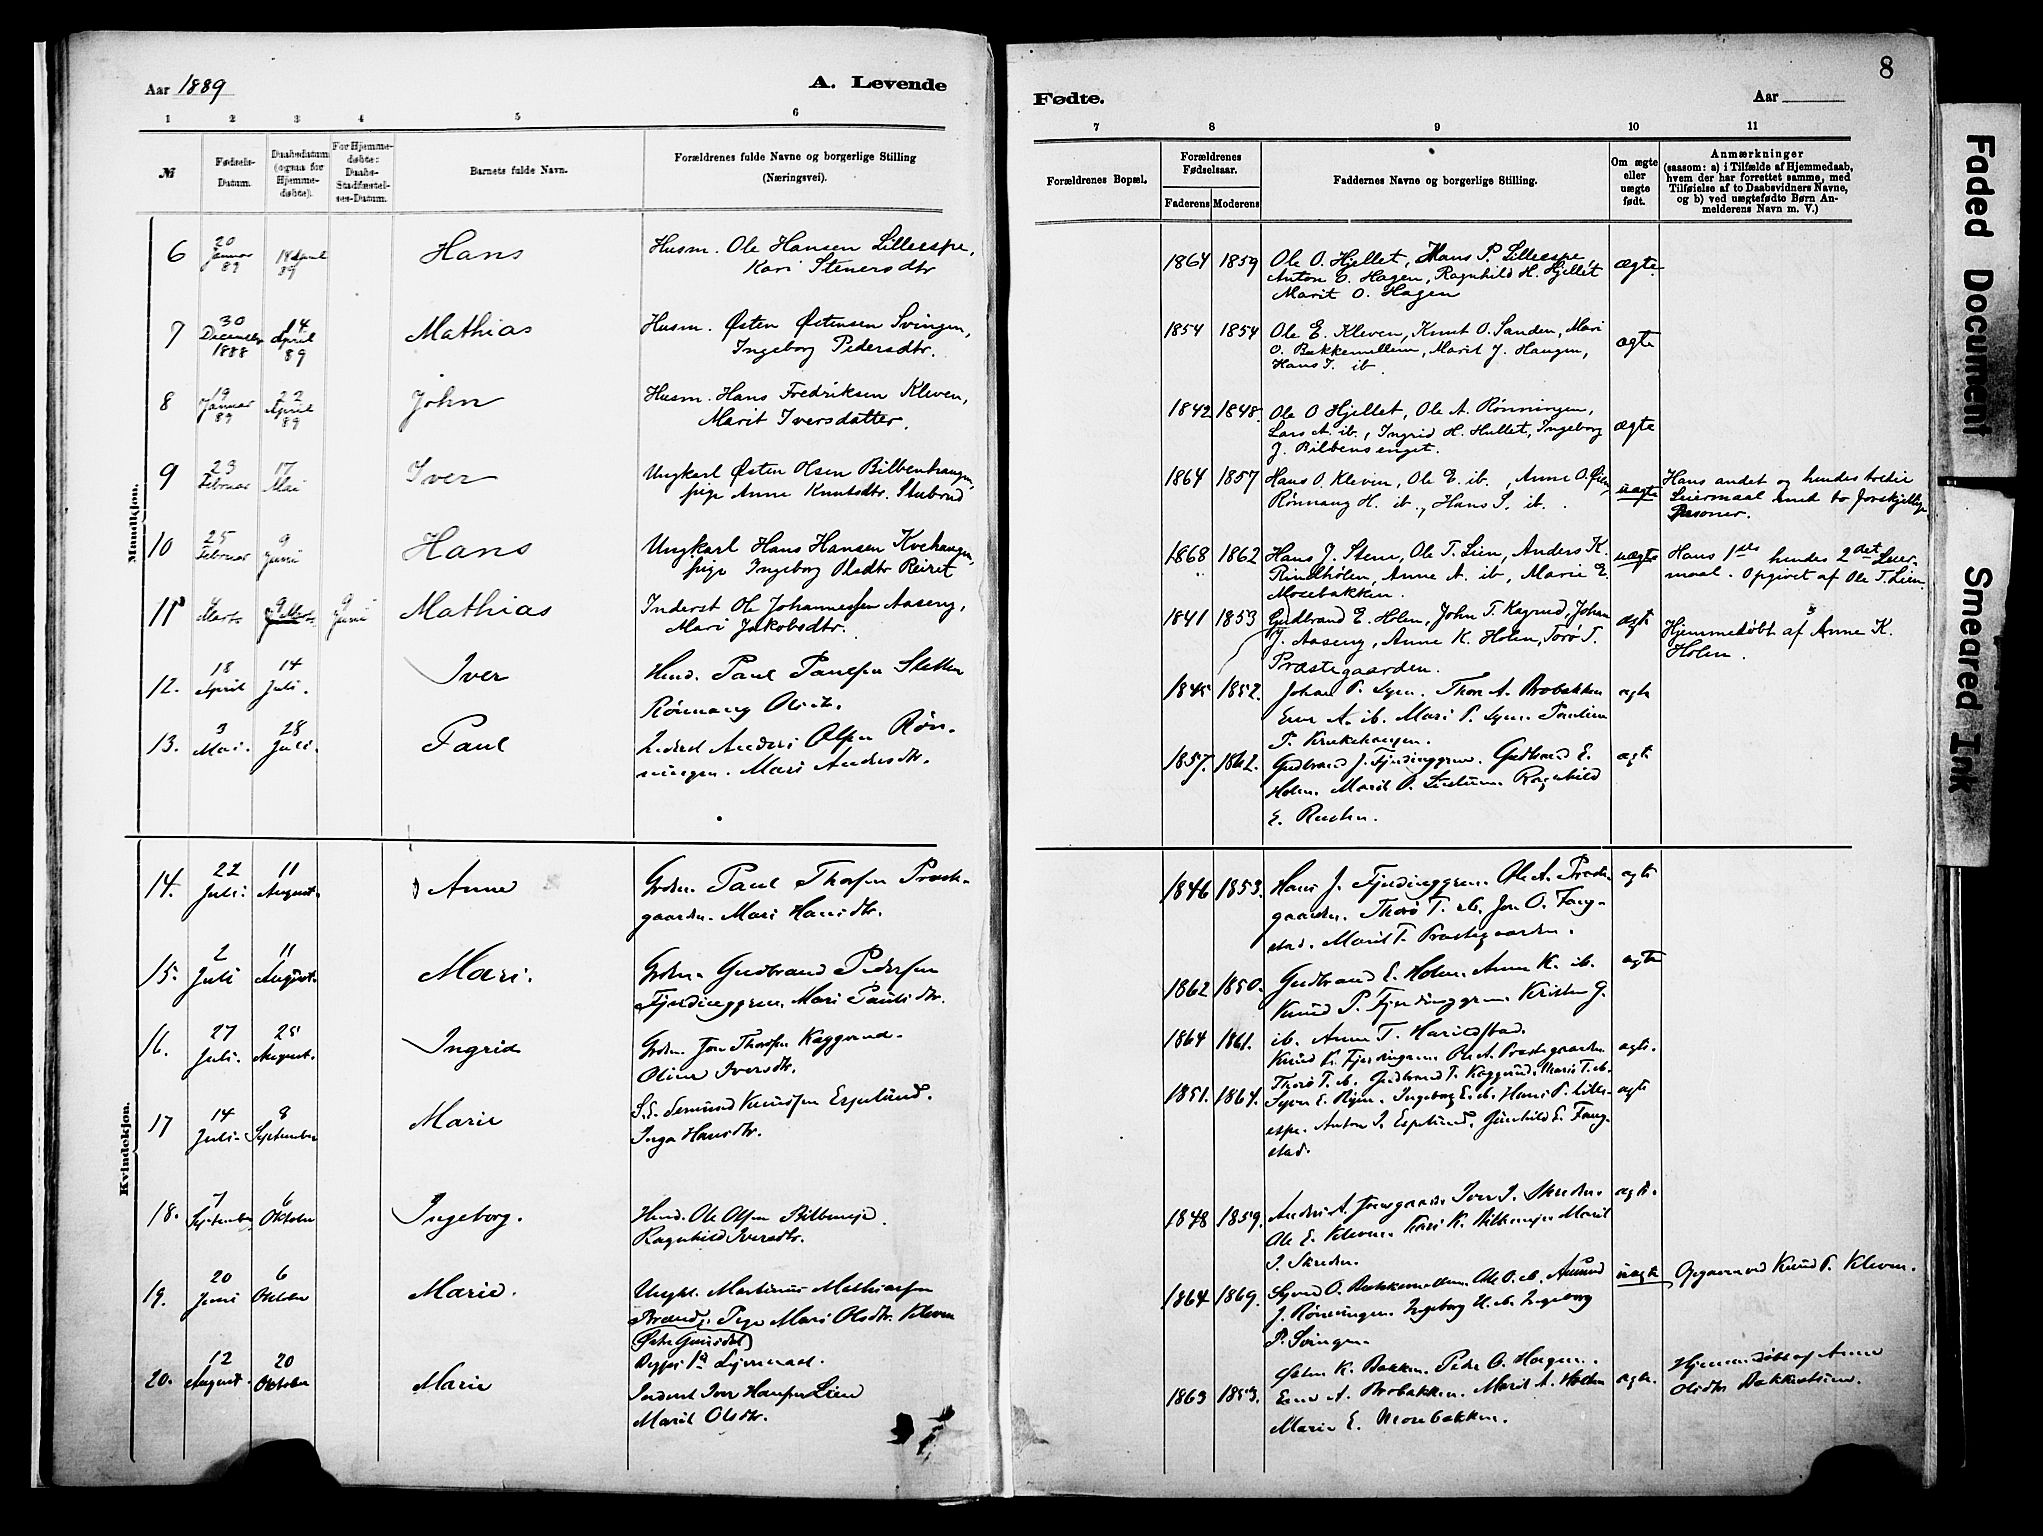 Aar 1889
A. Levende
1 2 3 4 5 6
№
Fødsels-Datum.
Daabsdatum (ogsaa for Hjemmedøbte).
For Hjemmedøbte: Daabs-Stadfæstelses-Datum.
Barnets fulde Navn.
Forældrenes fulde Navne og borgerlige Stilling (Næringsvei).
Mandkjøn.
6 20 Januar 89 14 April 89 Hans Husm. Ole Hansen Lilleespe,
Kari Stenersdtr
7 30 December 1888 14 April 89 Mathias Husm. Østen Østensen Svingen,
Ingeborg Pedersdtr.
8 19 Januar 89 22 April 89 John Husm. Hans Fredriksen Kleven,
Marit Iversdatter.
9 23 Februar 17 Mai Iver Ungkarl Østen Olsen Bilbenhaugen,
pige Anne Knutsdtr. Skubrud
10 25 Februar 9 Juni Hans Ungkarl Hans Hansen
pige Ingeborg Olsdtr Reiret
11 Marts 9 Marts 9 Juni Mathias Inderst Ole Johannessen Aaseng,
Mari Jakobsdtr.
12. 18 April 14 Juli. Iver Husd. Paul Paulsen Sletten
Rønnaug Olsdtr.
13. 3 Mai. 28 Juli. Paul Inderst Anders Olsen Røn-
ningen. Mari Andersdtr.
Kvindekjøn.
14. 22 Juli. 11 August. Anne Grdbr. Paul Thorsen Præste-
gaarden. Mari Hansdtr.
15. 2 Juli 11 August. Mari. Grdbr. Gudbrand Pedersen
Fjerdinggren. Mari Paulsdtr.
16. 27 Juli. 25 August. Ingrid Grdbr. Jon Thorsen Kaggerud.
Oline Iversdtr.
17 14 Juli. 8 September Marie S.E. Semund Knudsen Espelund.
Inga Hansdtr.
18. 7 September 6 Oktober Ingeborg. Husd. Ole Olsen
Ragnhild Iversdtr.
19. 20 Juni 6 Oktober Marie. Ungk. Martinus Mathiassen
Brænd, Pige Mari Olsdtr. Kleven
(Østre Gausdal)
Begges 1ste Lejermaal.
20. 12 August. 20 Oktober Marie Inderst Iver Hansen Lien
Marit Olsdtr.
8
Fødte.
Aar
7 8 9 10 11
Forældrenes Bopæl.
Forældrenes Fødselsaar.
Faderens Moderens
Faddernes Navne og borgerlige Stilling.
Om ægte eller uægte født.
Anmærkninger
(saasom: a) i Tilfælde af Hjemmedaab, hvem der har forrettet samme, med Tilføielse af to Daabsvidners Navne, og b) ved uægtefødte Børn Anmelderens Navn m. V.)
1864 1859 Ole O. Hjellet, Hans P. Lilleespe,
Anton O. Hagen, Ragnhild H. Hjellet
Marit O. Hagen ægte
1854 1854 Ole E. Kleven, Knut O. Sanden, Mari
O. Bakkemellem, Marit J. Haugen,
Hans J. ib. ægte
1842 1848. Ole O Hjellet, Ole A. Rønningen,
Lars A. ib., Ingrid H. Hullet, Ingeborg
J. Bilbensenget. ægte
1864 1857 Hans O. Kleven, Ole E. ib., Anne O. Øien,
Rønnaug H. ib., Hans S. ib. uægte
Hans andet og hendes tredie
Leiermaal med to forskjellige
Personer.
1868 1862 Hans J. Stene, Ole T. Lien, Anders K.
Rindhølen, Anne A. ib, Marie E.
Mosebakken. uægte
Hans 1ste hendes 2det Leier-
maal. Opgivet af Ole T. Lien
1841 1853 Gudbrand E. Holen, John T. Kagrud, Johan
J. Aaseng, Anne K. Holen, Torø T.
Præstegaarden. ægte
Hjemmedøbt af Anne K.
Holen.
1845 1852. Johan P. Thor A. Brobakken
A. ib. Mari P.
P. ægte
1857. 1862. Gudbrand J. Fjerdinggren. Gudbrand E.
Holen. Marit P. Ragnhild
E. ægte
1846 1853. Hans J. Fjerdinggren. Ole A. Præste-
gaarden. Thorø T. ib. Jon O. Fang-
stad. Marit T. Præstegaarden. ægte
1862 1850. Gudbrand E. Holen. Anne K. ib.
Knud P. Fjerdinggren. Kristen G.
ib. Anne T. Harildstad. ægte
1864 1861. Knud K. Fjerdingren. Ole A. Præstegaarden
Thorø T. ib. Gudbrand T. Kaggerud. Marit T. ib. ægte.
1851. 1864. Syver E. Ingeborg E. ib. Hans P. Lille-
espe. Anton I. Espelund. Gunhild E. Fang-
stad. ægte
1848 1859. Anders A. Iver I. Skreden.
Ole E. Kleven. Kari K. Marit
I. Skreden. ægte.
1864 1869. Syver O. Bakkemellem. Ole O. ib. Amund
J. Rønningen. Ingeborg H. ib. Ingeborg
P. Svingen. uægte
Opgivet ved Knud P. Kleven.
1863 1853. Østen K. Bakken. Peder O. Hagen.
A. Brobakken. Marit A. Holen
Marie E. Mosebakken. ægte.
Hjemmedøbt af Anne
Olsdtr
Faded Document
Smeared Ink